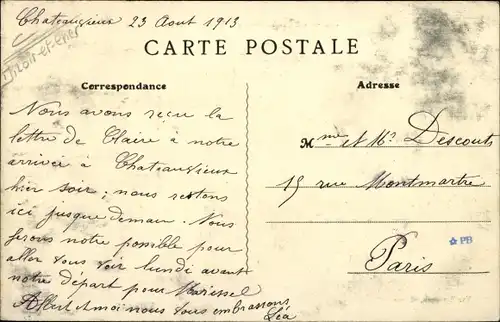 Chateauvieux 23 Aout 1913
Loir-et-Cher
CARTE POSTALE
Correspondance
Adresse
Nous avons reçu la
lettre de Claire à notre
arrivée à Chateauvieux
hier soir; nous restons
ici jusque demain. Nous
ferons notre possible pour
aller vous voir lundi avant
notre départ pour
Albert et moi nous vous embrassons
Léa
Mme et Mr Descouts
15 rue Montmartre
Paris
PB